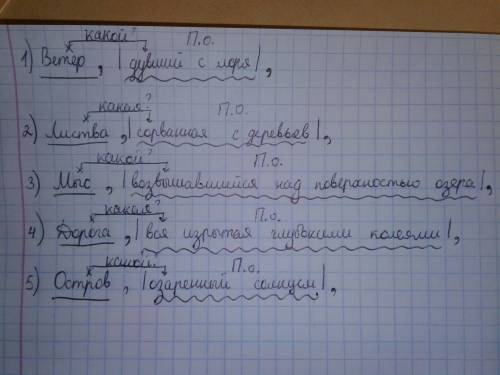 какой? П.о.
1) Ветер, |дувший с моря|,
какая? П.о.
2) Листва, |сорванная с деревьев|,
какой? П.о.
3) Мыс, |возвышавшийся над поверхностью озера|,
какая? П.о.
4) Дорога, |вся изрытая глубокими колеями|,
какой? П.о.
5) Остров, |озаренный солнцем|,